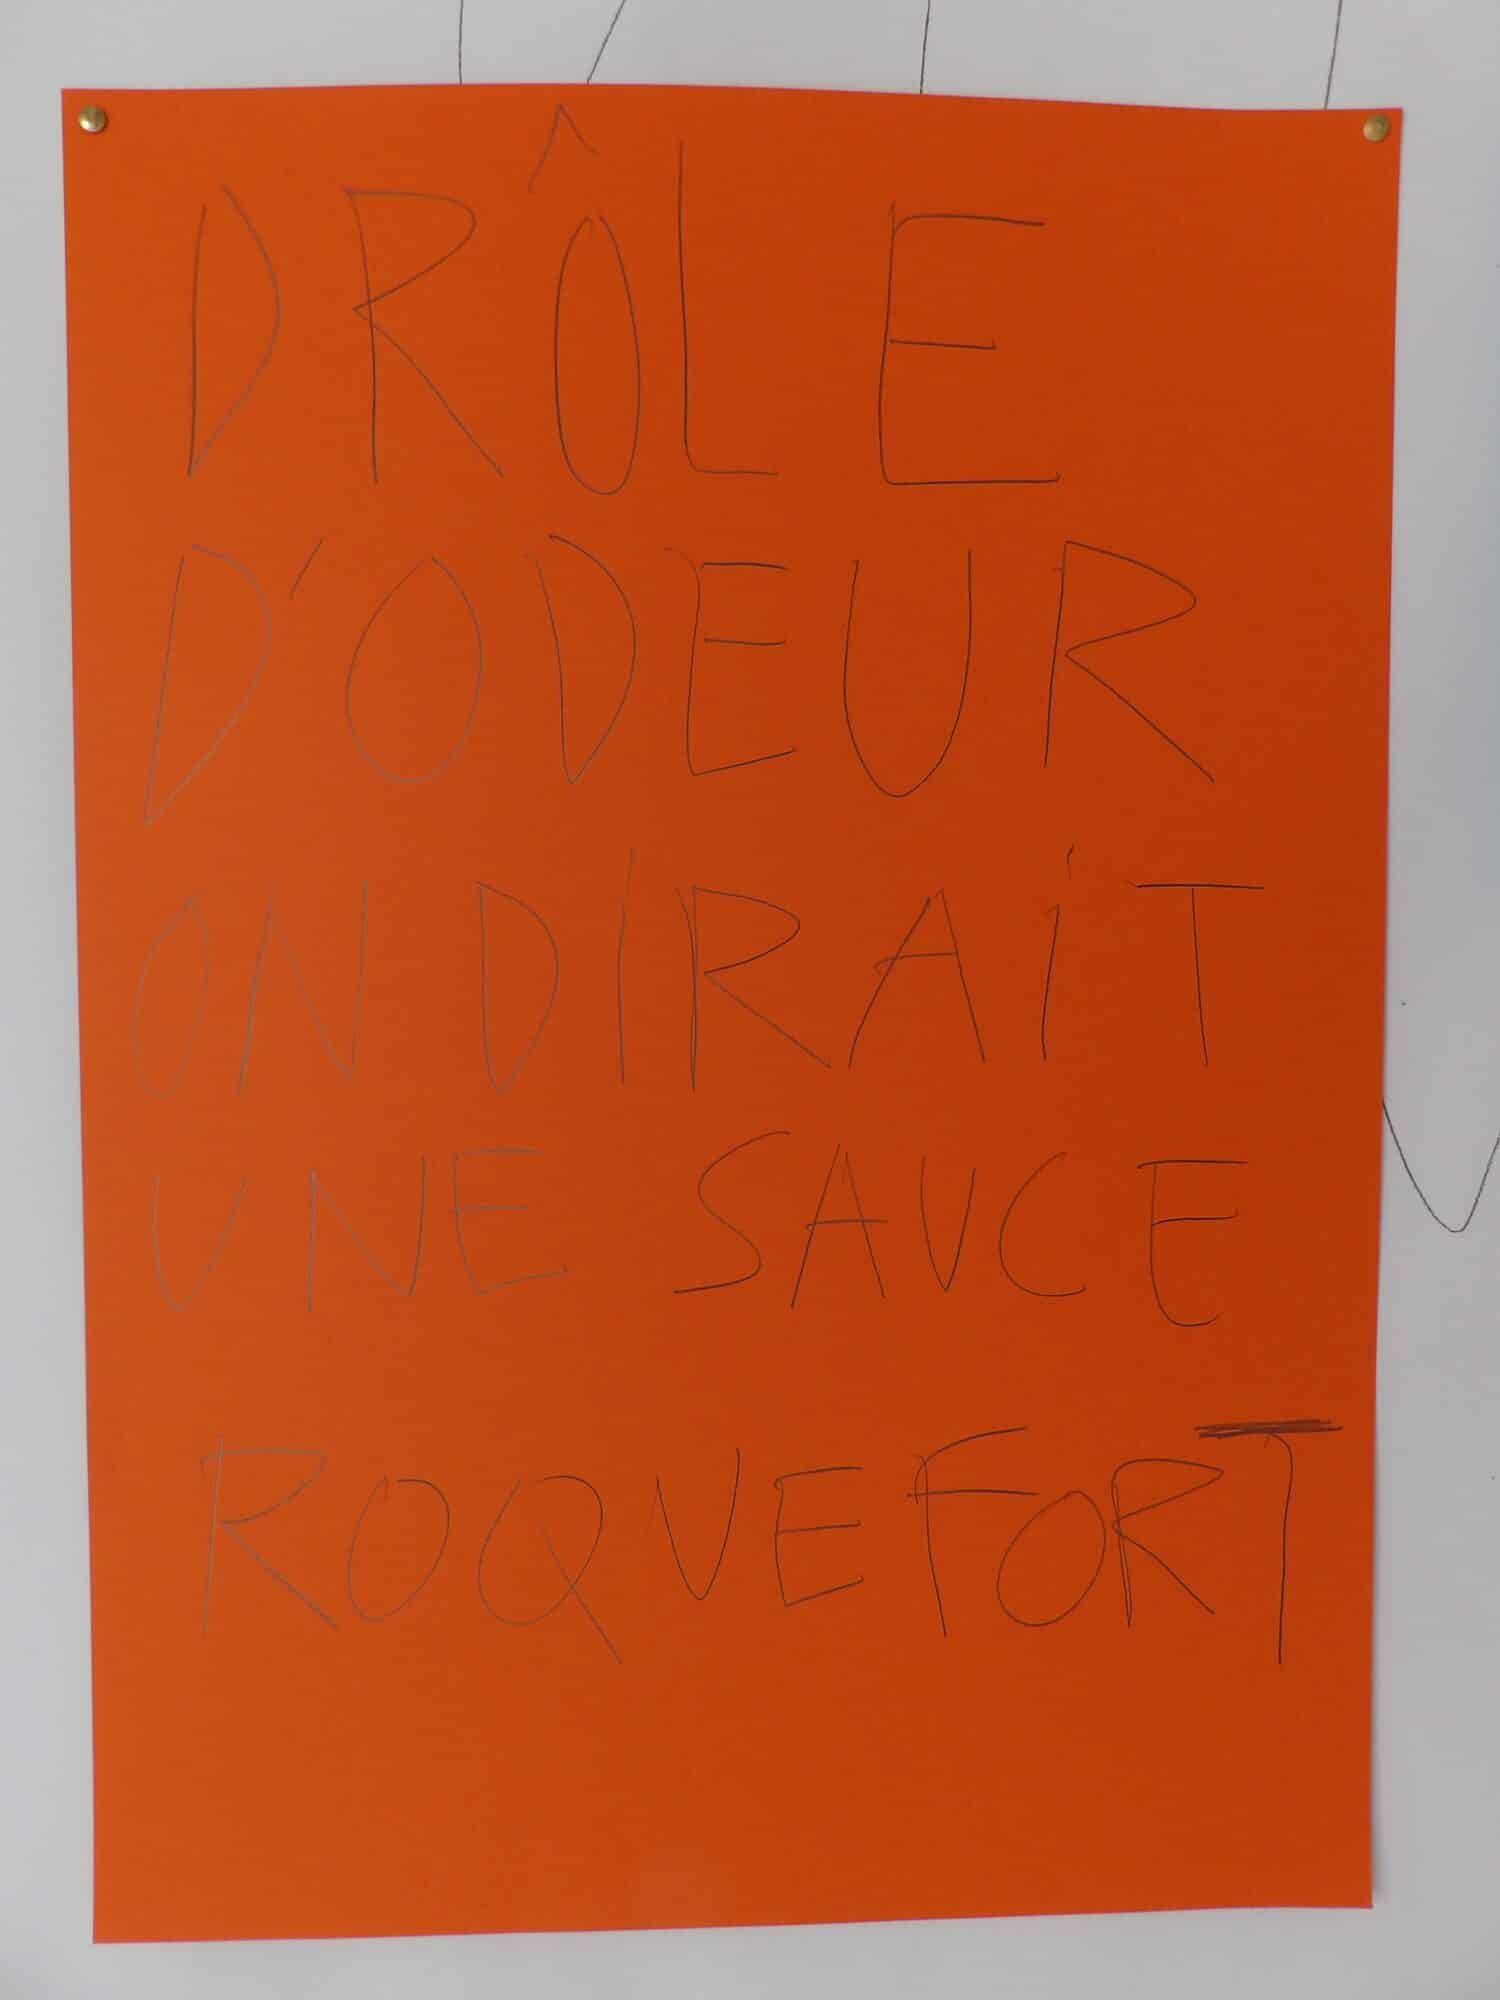 DRÔLE
D'ODEUR
ON DIRAIT
UNE SAUCE
ROQUEFORT